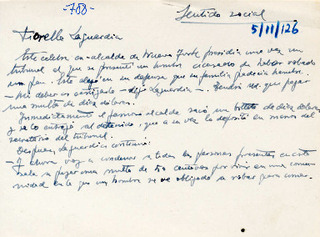 -708-
Sentido social
5/11/126
Fiorello Laguardia
Este célebre ex-alcalde de Nueva York presidía una vez un
tribunal al que se presentó un hombre acusado de haber robado
un pan. Este dejó en su defensa que su familia padecía hambre.
— He de castigarlo — dijo Laguardia —. Tendrá Ud. que pagar
una multa de diez dólares.
Inmediatamente el famoso alcalde sacó un billete de diez dólares
y se lo entregó al detenido, que a su vez lo depositó en manos del
secretario del tribunal.
Después, Laguardia continuó:
— Y ahora voy a condenar a todas las personas presentes en esta
sala a pagar una multa de 50 centavos por vivir en una comu-
nidad en la que un hombre se ve obligado a robar para comer.